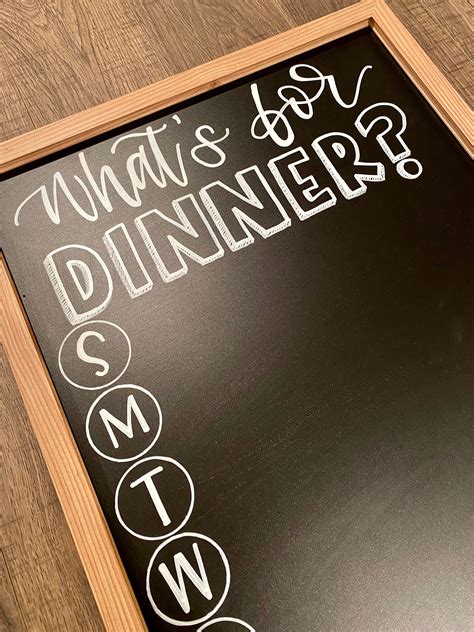 What's for
DINNER?
S
M
T
W